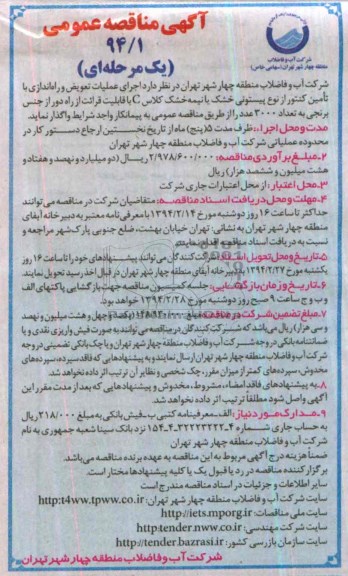 آگهی مناقصه عمومی
۹۴/۱
(یک مرحله‌ای)
شرکت آب و فاضلاب
منطقه چهار شهر تهران (سهامی خاص)
شرکت آب و فاضلاب منطقه چهار شهر تهران در نظر دارد اجرای عملیات تعویض و راه‌اندازی با
تأمین کنتور از نوع پیستونی خشک یا نیمه‌خشک کلاس C با قابلیت قرائت از راه دور از جنس
برنجی به تعداد ۳۰۰۰ عدد را از طریق مناقصه عمومی به پیمانکار واجد شرایط واگذار نماید.
مدت و محل اجرا: ظرف مدت ۵ (پنج) ماه از تاریخ نخستین ارجاع دستور کار در
محدوده عملیاتی شرکت آب و فاضلاب منطقه چهار شهر تهران
۲-مبلغ برآوردی مناقصه: ۲/۹۷۸/۶۰۰/۰۰۰ ریال (دو میلیارد و نهصد و هفتاد و
هشت میلیون و ششصد هزار) ریال
۳-محل اعتبار: از محل اعتبارات جاری شرکت
۴-مهلت و محل دریافت اسناد مناقصه: متقاضیان شرکت در مناقصه می‌توانند
حداکثر تا ساعت ۱۶ روز دوشنبه مورخ ۱۳۹۴/۲/۱۴ با معرفی‌نامه معتبر به دبیرخانه آبفای
منطقه چهار شهر تهران به نشانی: تهران خیابان بهشت، ضلع جنوبی پارک شهر مراجعه و
نسبت به دریافت اسناد مناقصه اقدام نمایند.
۵-تاریخ و محل تحویل اسناد: شرکت‌کنندگان می‌توانند پیشنهادهای خود را تا ساعت ۱۶ روز
یکشنبه مورخ ۱۳۹۴/۲/۲۷ به دبیرخانه آبفای منطقه چهار شهر تهران در قبال اخذ رسید تحویل نمایند.
۶-تاریخ و زمان بازگشایی: جلسه کمیسیون مناقصه جهت بازگشایی پاکتهای الف
و ب و ج ساعت ۹ صبح روز دوشنبه مورخ ۱۳۹۴/۲/۲۸ خواهد بود.
۷-مبلغ تضمین شرکت در مناقصه: مبلغ (یکصد و چهل و هشت میلیون و نهصد
و سی هزار) ریال می‌باشد که شرکت‌کنندگان در مناقصه می‌توانند به صورت فیش واریزی نقدی و یا
ضمانتنامه بانکی در وجه شرکت آب و فاضلاب منطقه چهار شهر تهران و یا چک بانکی تضمینی در وجه
شرکت آب و فاضلاب منطقه چهار شهر تهران ارسال نمایند و به پیشنهادهایی که فاقد سپرده، سپرده‌های
مخدوش، سپرده‌های کمتر از میزان مقرر، چک شخصی و نظایر آن ترتیب اثر داده نخواهد شد.
۸-به پیشنهادهای فاقد امضاء، مشروط، مخدوش و پیشنهادهایی که بعد از مدت مقرر این
آگهی واصل شود مطلقاً ترتیب اثر داده نخواهد شد.
۹-مدارک مورد نیاز: الف. معرفینامه کتبی ب. فیش بانکی به مبلغ ۲۱۸/۰۰۰ ریال
به حساب جاری شماره نزد بانک سینا شعبه جمهوری به نام
شرکت آب و فاضلاب منطقه چهار شهر تهران
ضمناً هزینه درج آگهی مربوط به این مناقصه به عهده برنده مناقصه می‌باشد.
برگزار کننده مناقصه در رد یا قبول یک یا کلیه پیشنهادها مختار است.
سایر اطلاعات و جزئیات در اسناد مناقصه مندرج است
سایت شرکت آب و فاضلاب منطقه چهار شهر تهران: http:t4ww.tpww.co.ir
سایت ملی مناقصات: http://iets.mporg.ir
سایت شرکت مهندسی: http:tender.nww.co.ir
سایت سازمان بازرسی کشور: http://tender.bazrasi.ir
شرکت آب و فاضلاب منطقه چهار شهر تهران